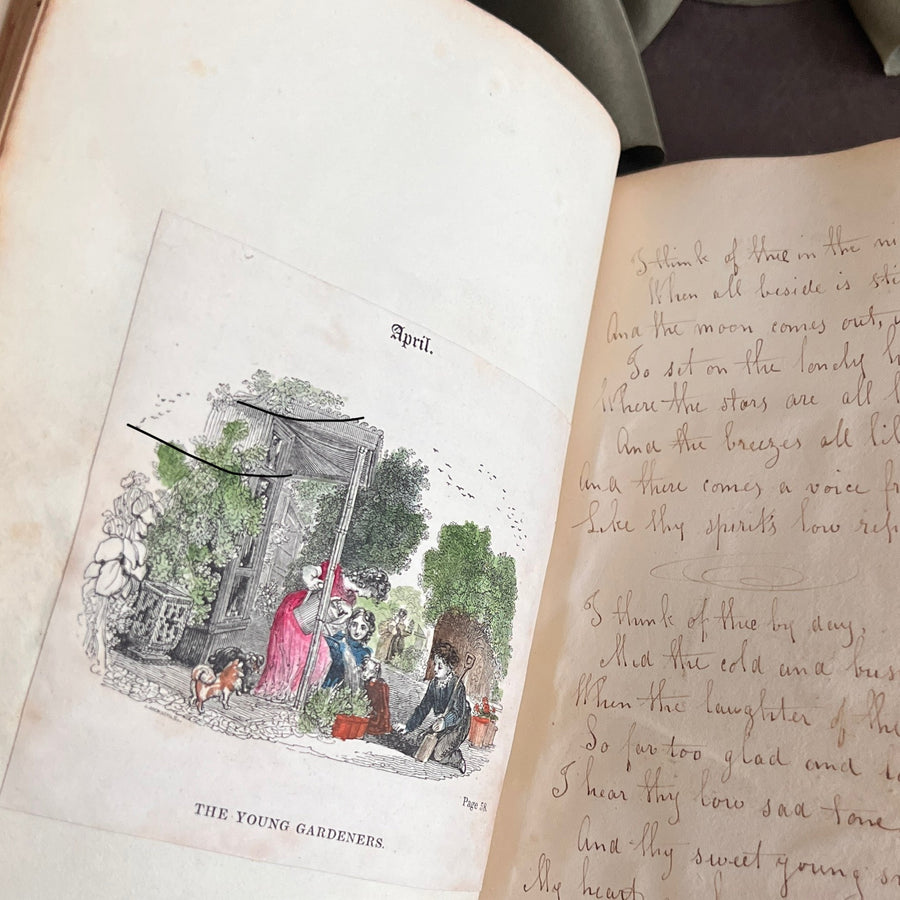 April.
Page 58.
THE YOUNG GARDENERS.
I think of thee in the
When all beside is
And the moon comes out,
To set on the lonely
Where the stars are all
And the breezes all
And there comes a voice
Like thy spirit's low
I think of thee by day,
Mid the cold and
When the laughter of the
So far too glad and
I hear thy low sad tone
And thy sweet young
My heart